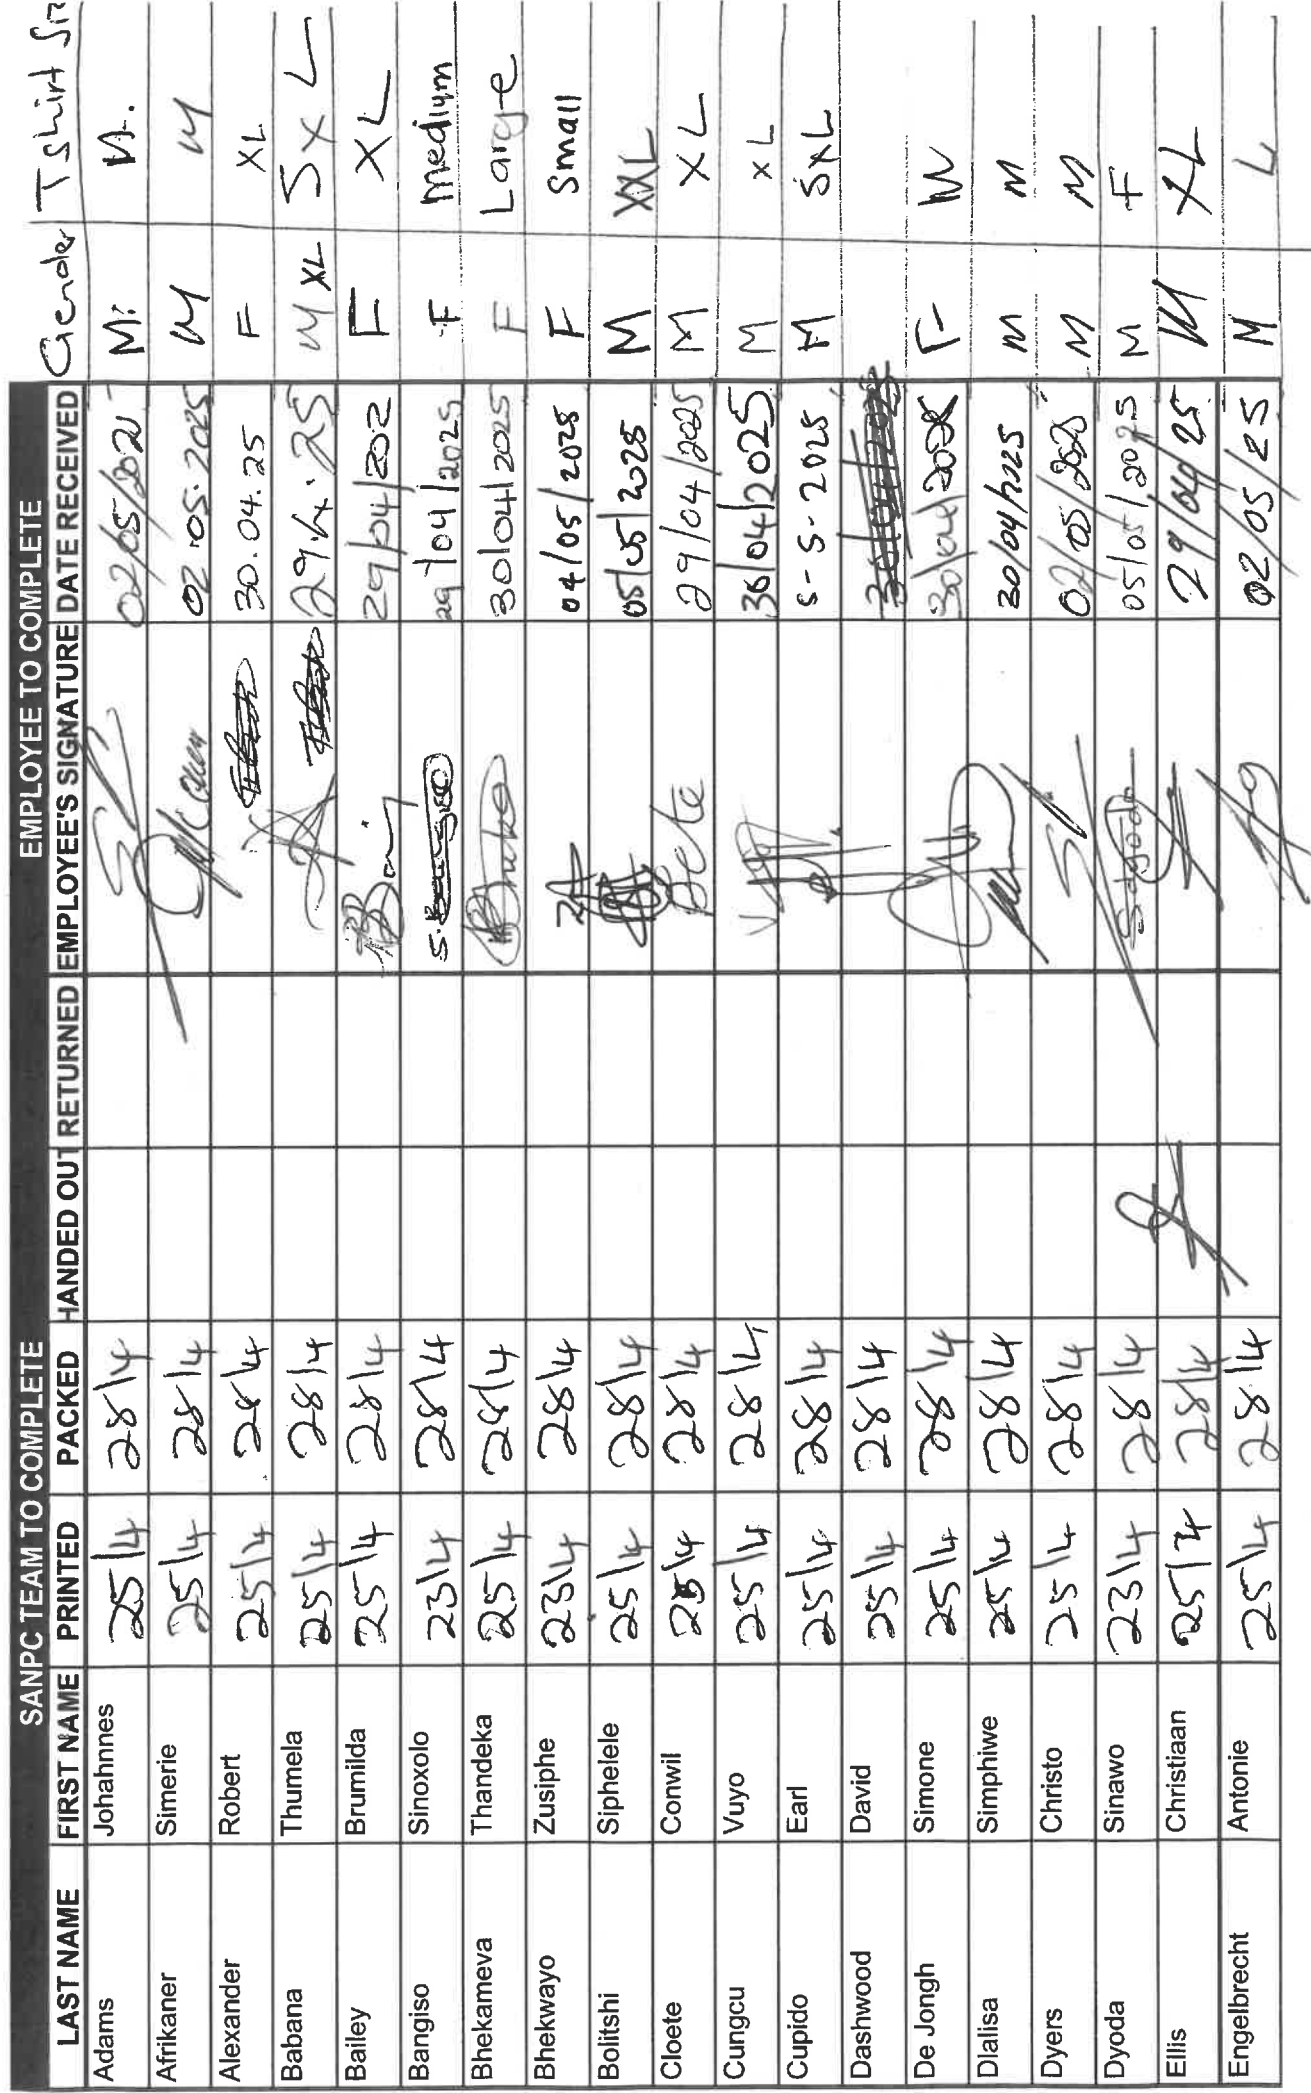 SANPC TEAM TO COMPLETE EMPLOYEE TO COMPLETE
LAST NAME FIRST NAME PRINTED PACKED HANDED OUT RETURNED EMPLOYEE'S SIGNATURE DATE RECEIVED Gender Tshirt Siz
Adams Johahnnes 25/4 28/4 02/05/202 M: M.
Afrikaner Simerie 25/4 28/4 02.05.2025 M M
Alexander Robert 25/4 28/4 30.04.25 F XL
Babana Thumela 25/4 28/4 M XL 5XL
Bailey Brumilda 25/4 28/4 29/04/202 F XL
Bangiso Sinoxolo 23/4 28/4 29/04/2025 F Medium
Bhekameva Thandeka 25/4 28/4 30/04/2025 F Large
Bhekwayo Zusiphe 23/4 28/4 04/05/2025 F Small
Bolitshi Siphelele 25/4 28/4 05/05/2025 M XXL
Cloete Conwil 25/4 28/4 29/04/2025 M XL
Cungcu Vuyo 25/4 28/4 30/04/2025 M XL
Cupido Earl 25/4 28/4 5-5-2025 M 5XL
Dashwood David 25/4 28/4
De Jongh Simone 25/4 28/4 F M
Dlalisa Simphiwe 25/4 28/4 30/04/2025 M M
Dyers Christo 25/4 28/4 02/05/2025 M M
Dyoda Sinawo 23/4 28/4 05/05/2025 M F
Ellis Christiaan 25/4 28/4 29/04/25 M XL
Engelbrecht Antonie 25/4 28/4 02/05/25 M L